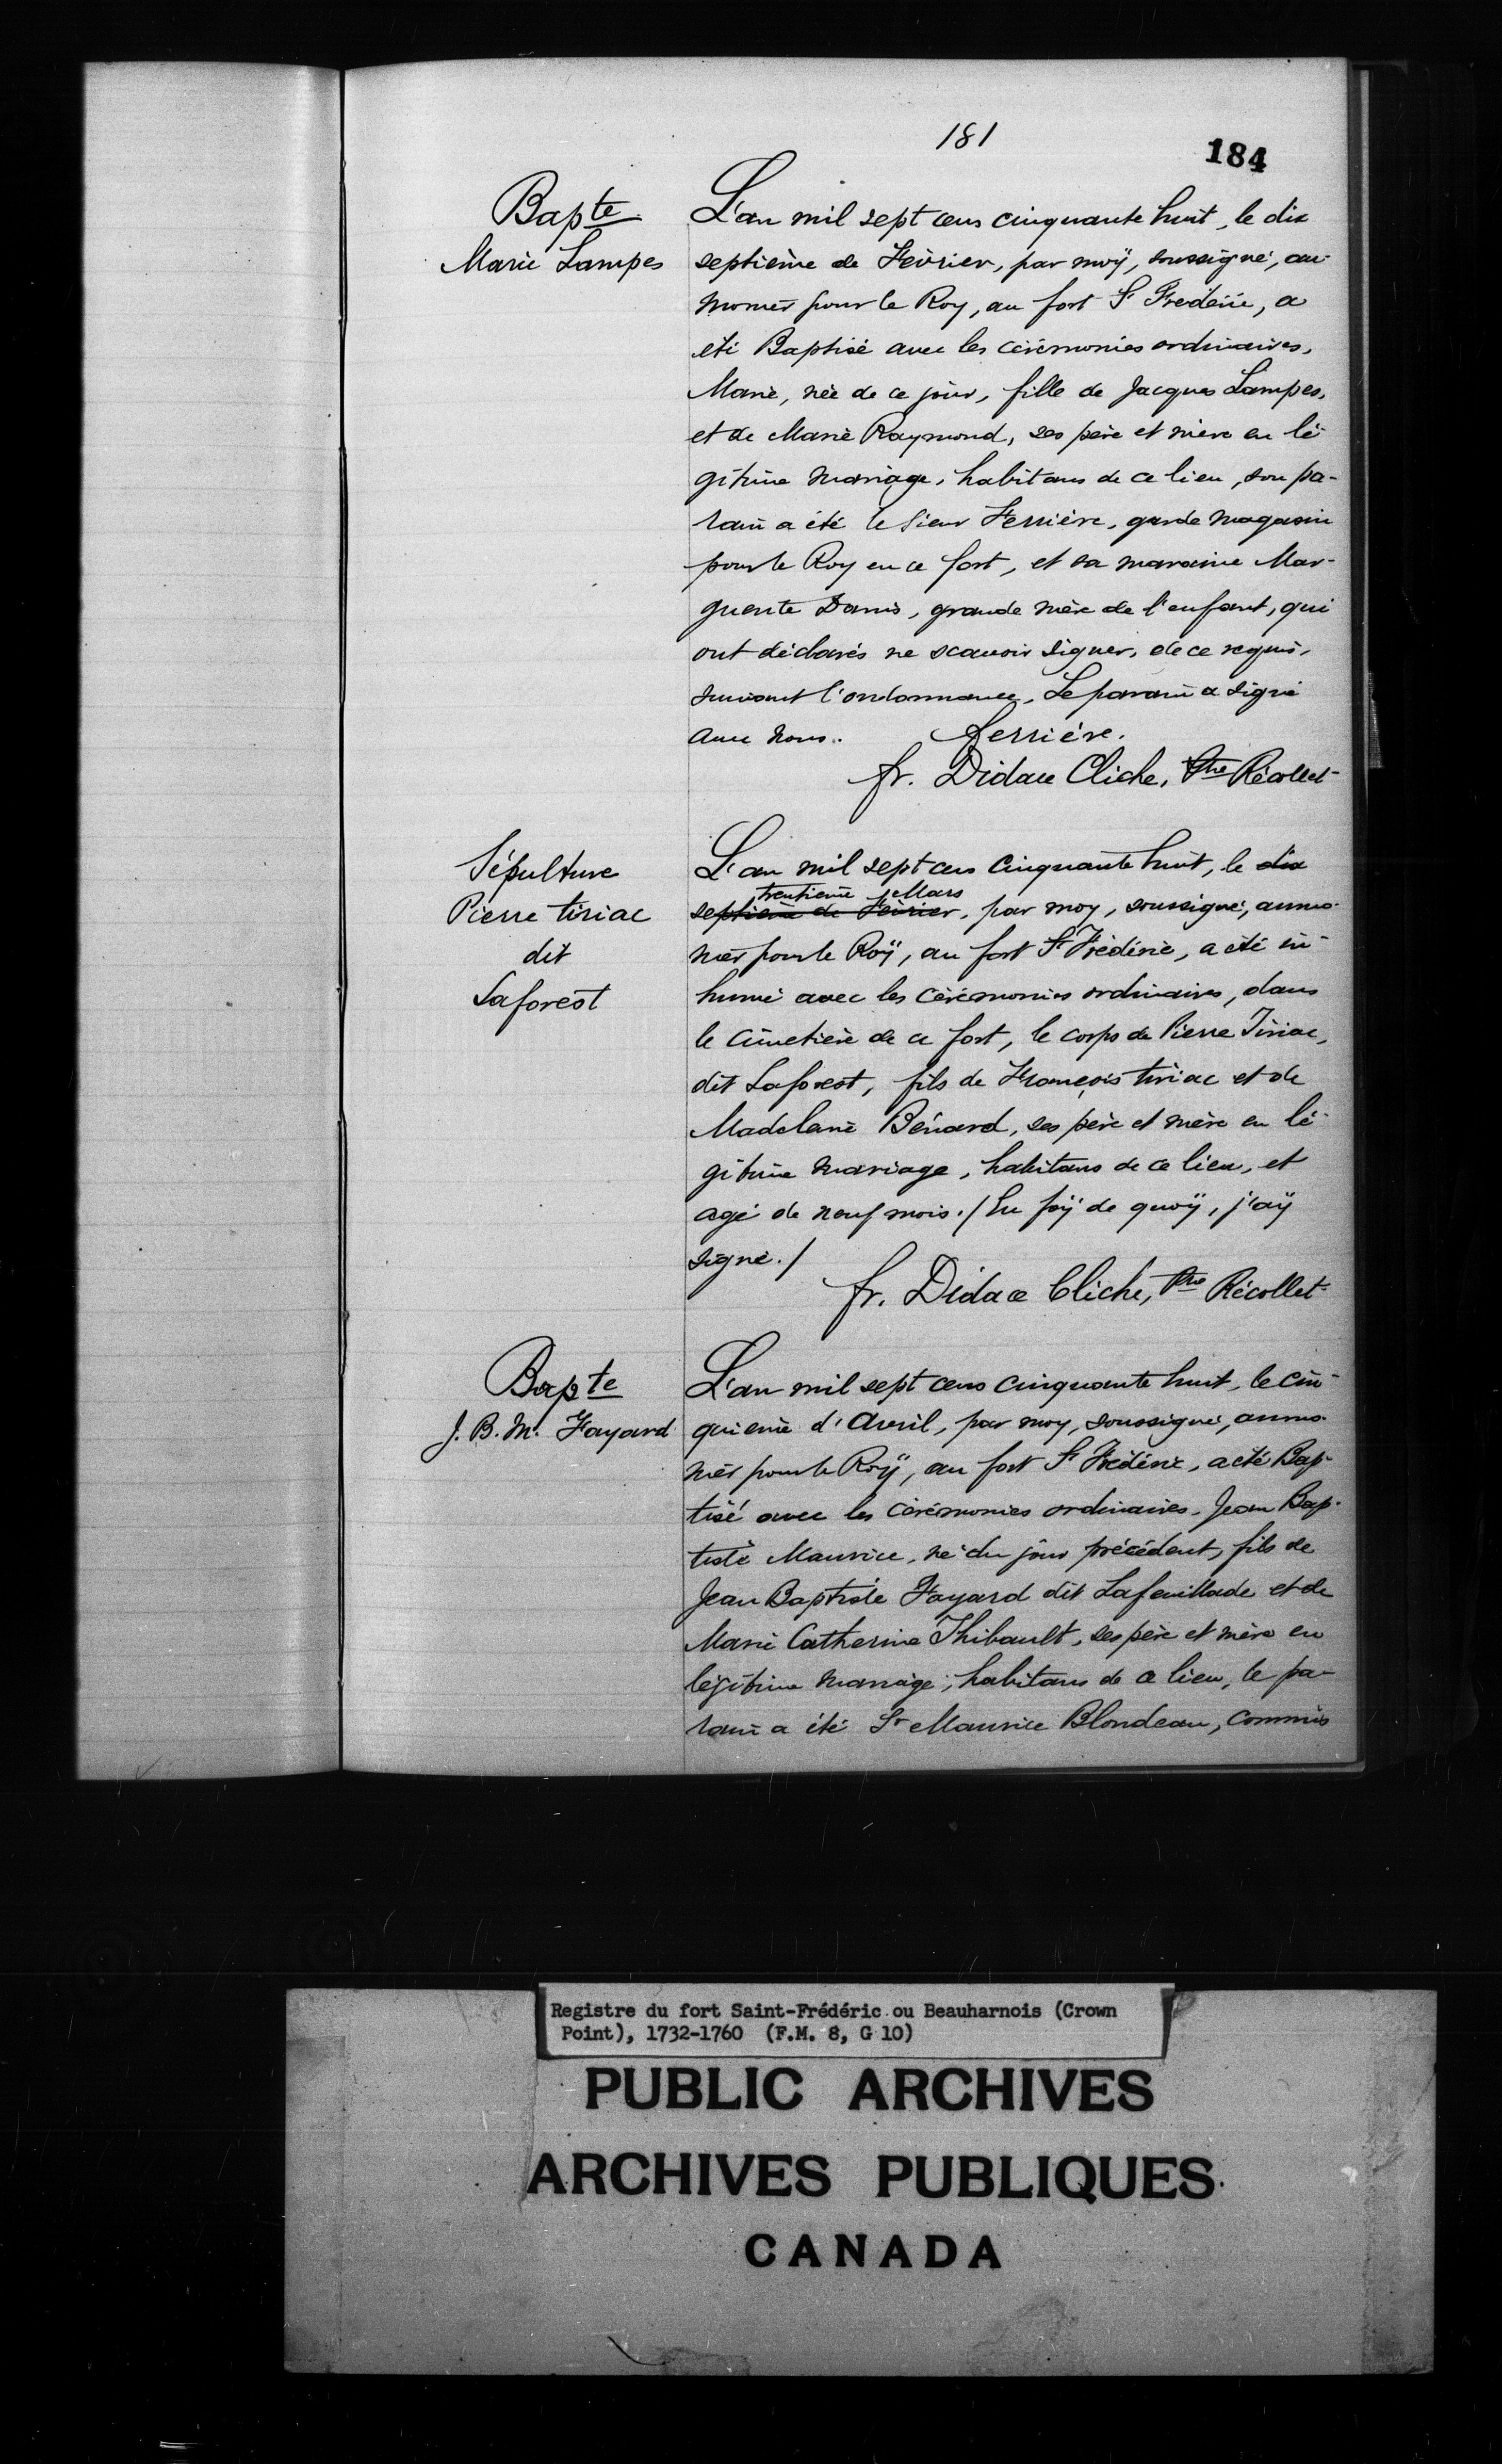 181
184
Bapte
Marie Lampes
L'an mil sept cens cinquante huit, le dix
septième de Février, par moÿ, soussigné, au-
monier pour le Roy, au fort St Frédéric, a
été Baptisé avec les cérémonies ordinaires,
Marie, née de ce jour, fille de Jacques Lampes,
et de Marie Raymond, ses père et mère en lé-
gitime mariage, habitans de ce lieu, son pa-
rain a été le Sieur Ferrière, garde magasin
pour le Roy en ce fort, et sa maraine Mar-
guerite Danis, grande mère de l'enfant, qui
ont déclarés ne scavoir signer, de ce requis,
suivant l'ordonnance. Le parain a signé
avec nous. Ferrière.
fr. Didace Cliche, Ptre Récollet
Sépulture
Pierre tiriac
dit
Laforest
L'an mil sept cens cinquante huit, le dix
trentième Mars
septième de Février, par moy, soussigné, aumo-
nier pour le Roÿ, au fort St Frédéric, a été in-
humé avec les cérémonies ordinaires, dans
le cimetière de ce fort, le corps de Pierre Tiriac,
dit Laforest, fils de François tiriac et de
Madelaine Bénard, ses père et mère en lé-
gitime mariage, habitans de ce lieu, et
agé de neuf mois./ En foÿ de quoÿ, j'aÿ
signé./
fr. Didace Cliche, Ptre Récollet
Bapte
J. B. M. Fayard
L'an mil sept cens cinquante huit, le cin-
quième d'Avril, par moy, soussigné, aumo-
nier pour le Roÿ, au fort St Frédéric, a été Bap-
tisé avec les cérémonies ordinaires, Jean Bap-
tiste Maurice, né du jour précédent, fils de
Jean Baptiste Fayard dit Lafeuillade et de
Marie Catherine Thibault, ses père et mère en
légitime mariage, habitans de ce lieu, le pa-
rain a été Sr Maurice Blondeau, commis
Registre du fort Saint-Frédéric ou Beauharnois (Crown
Point), 1732-1760 (F.M. 8, G 10)
PUBLIC ARCHIVES
ARCHIVES PUBLIQUES
CANADA